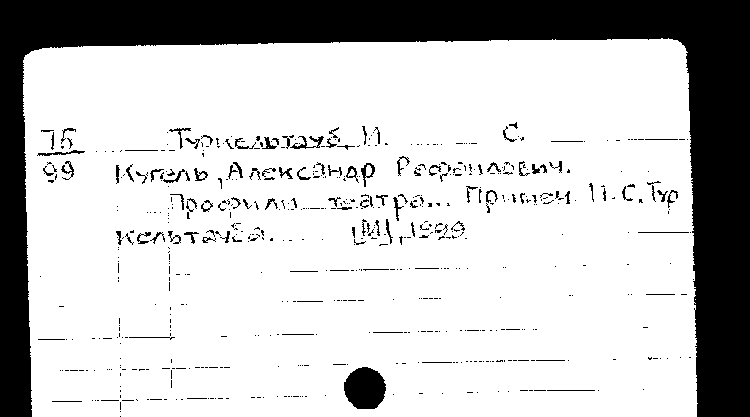 75 Туркельтауб, И. С.
99 Кугель, Александр Рафаилович.
Профили театра... Примеч И. С. Тур
кельтауба. [М], 1929